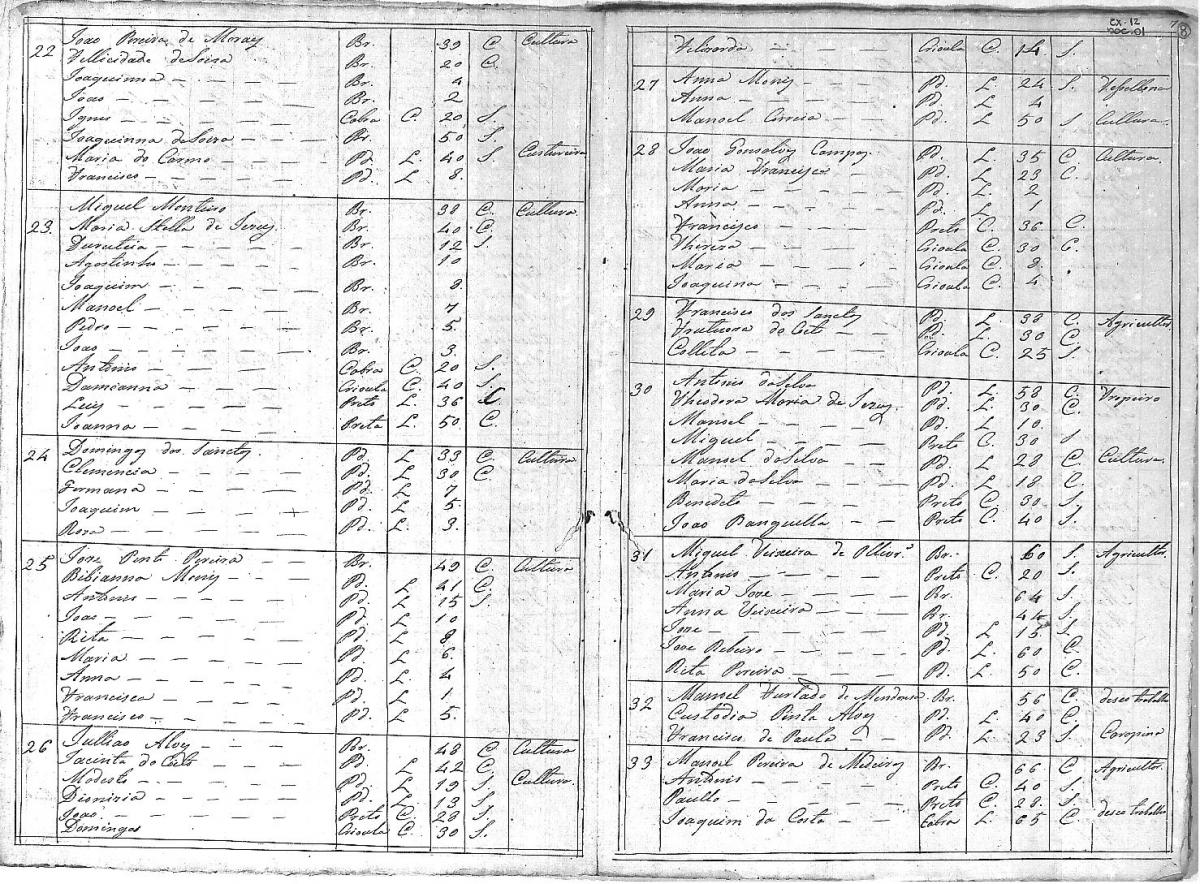 22 Joao Pereira de Moraes Br. 39 C Cultura
Vellicidade de Soiza Br. 20 C.
Joaquinna Br. 4
Joao Br. 2
Ignes Cabra C. 20 S.
Joaquinna de Soiza Br. 50 S.
Maria do Carmo Pd. L. 40 S. Custureira
Francisco Pd. L 8.
23. Miguel Monteiro Br. 38 C. Cultura
Maria Stella de Jezus Br. 40 C.
Duruteia Br. 12 S.
Agostinho Br. 10
Joaquim Br. 8
Manoel Br. 7
Pedro Br. 5.
Joao Br. 3.
Antonio Cabra C. 20 S.
Damianna Crioula C. 40 S.
Luis Preto L. 36
Joanna Preta L. 50 C.
24 Domingos dos Sanctos Pd. L 33 C. Cultura
Clemencia Pd. L 30 C.
Firmana Pd. L 7
Joaquim Pd. L 5.
Roza Pd. L. 3.
25 Joze Pinto Pereira Br. 49 C. Cultura
Bibianna Moniz Pd. L 41 C.
Antonio Pd. L 15 S.
Joao Pd. L 10
Rita Pd. L 8
Maria Pd. L 6.
Anna Pd. L 4
Francisca Pd. L 1.
Francisco Pd. L 5.
26 Julliao Alvez Br. 48 C. Cultura
Jacinta do Couto Pd. L 42 C.
Modesto Pd. L 19 S. Cultura
Dionizia Pd. L 13 S.
Joao Preto C. 28 S.
Domingos Crioulo C. 30 S.
CX-12
DOC.01
7
8
Crioula C. 14 S.
27 Anna Moniz Pd. L 24 S.
Anna Pd. L 4
Manoel Correia Pd. L 50 S Cultura.
28 Joao Gonsalvez Campos Pd. L. 35 C. Cultura.
Maria Francisca Pd. L 23 C.
Maria Pd. L. 2
Anna Pd. L 1
Francisco Preto C. 36 C.
Thereza Crioula C. 30 C.
Maria Crioula C. 8
Joaquina Crioula C. 4
29 Francisco dos Sanctos Pd. L. 38 C. Agricultor
do Couto Pd. L 30 C
Colleta Crioula C. 25 S
30 Antonio da Silva Pd. L 58 C. Tropeiro
Theodora Maria de Jezus Pd. L. 30 C.
Manoel Pd. L 10.
Miguel Preto C. 30 S
Manoel da Silva Pd. L 28 C. Cultura.
Maria da Silva Pd. L 18 C.
Benedito Preto C. 30 S.
Joao Banguella Preto C. 40 S.
31 Miguel Teixeira de Ollivr.ª Br. 60 S. Agricultor.
Antonio Preto C. 20 S.
Maria Joze Br. 64 S.
Anna Teixeira Br. 44 S.
Joze Pd. L 15 S.
Joze Ribeiro Pd. L. 60 C.
Rita Pereira Pd. L 50 C.
32 Manoel Furtado de Mendonsa Br. 56 C.
Custodia Pinta Alvez Pd. L. 40 C.
Francisco de Paula Pd. L 23 S. Carapina
33 Manoel Pereira de Medeiros Br. 66 C Agricultor.
Antonio Preto C. 40 S.
Paullo Preto C. 28 S.
Joaquim da Costa Cabra L. 65 C.